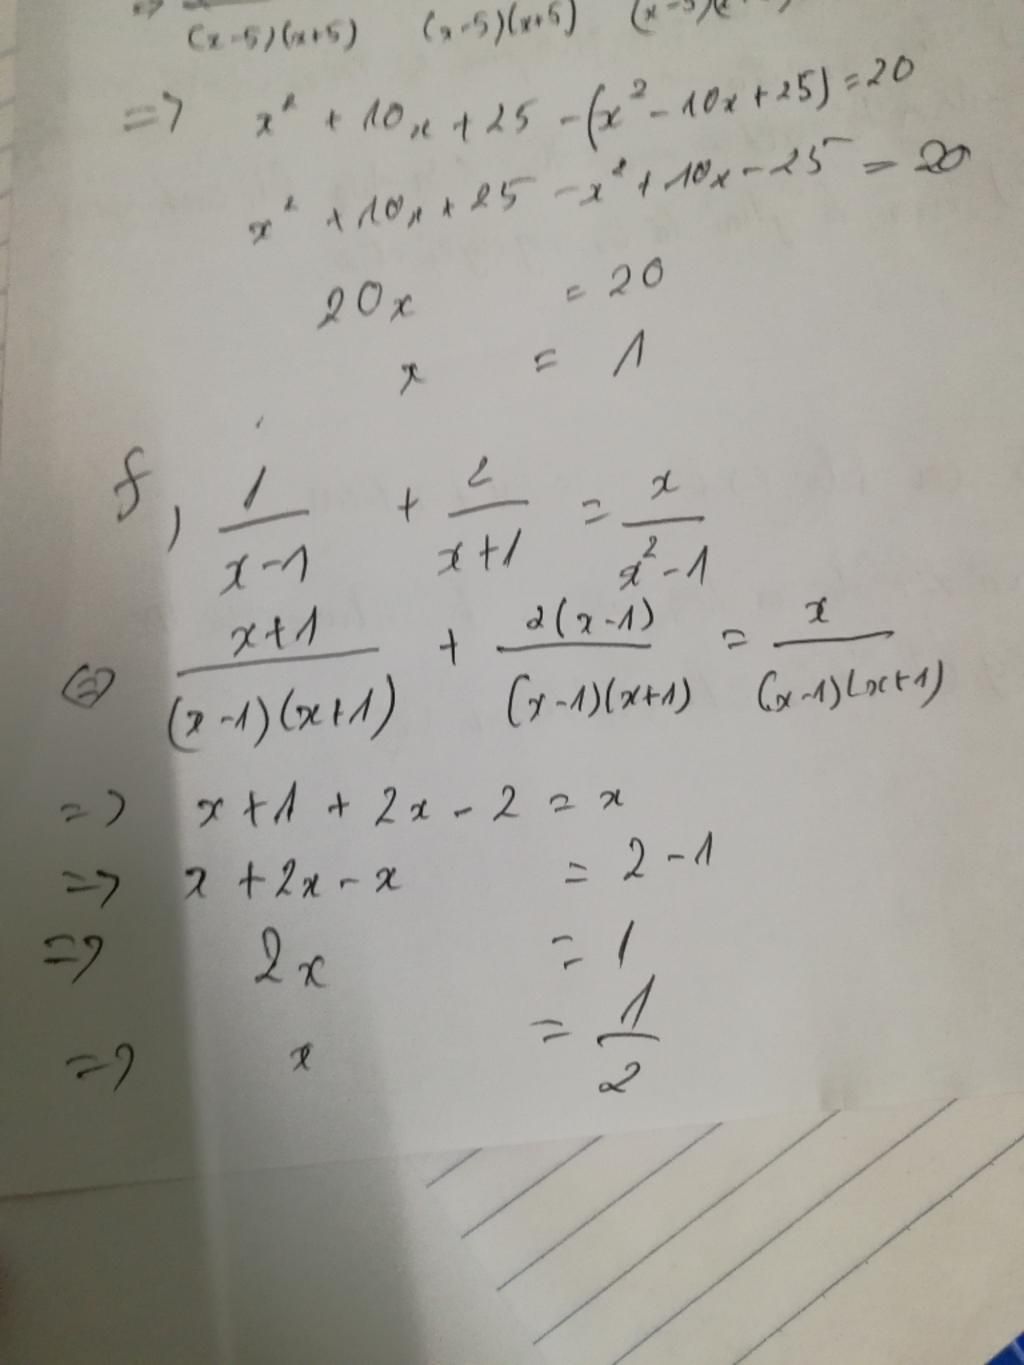 => (x-5)(x+5) (x-5)(x+5)
=> x² + 10x + 25 - (x² - 10x + 25) = 20
x² + 10x + 25 - x² + 10x - 25 = 20
20x = 20
x = 1
f, 1/(x-1) + 2/(x+1) = x/(x²-1)
<=> (x+1)/((x-1)(x+1)) + 2(x-1)/((x-1)(x+1)) = x/((x-1)(x+1))
=> x + 1 + 2x - 2 = x
=> x + 2x - x = 2 - 1
=> 2x = 1
=> x = 1/2